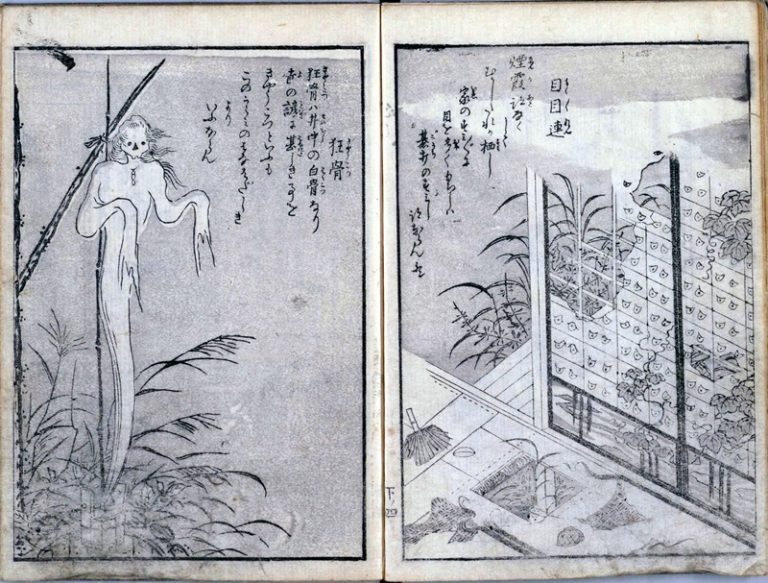 目目連
煙霞跡なくして
むかしたれか栖し
家のすみ〳〵に
目を多くもちしハ
碁打のすみし
跡ならんか
狂骨
狂骨ハ井中の白骨なり
世の諺に甚しき事を
きやうこつといふも
このうらみのはなはだしき
より
いふならん
下ノ四